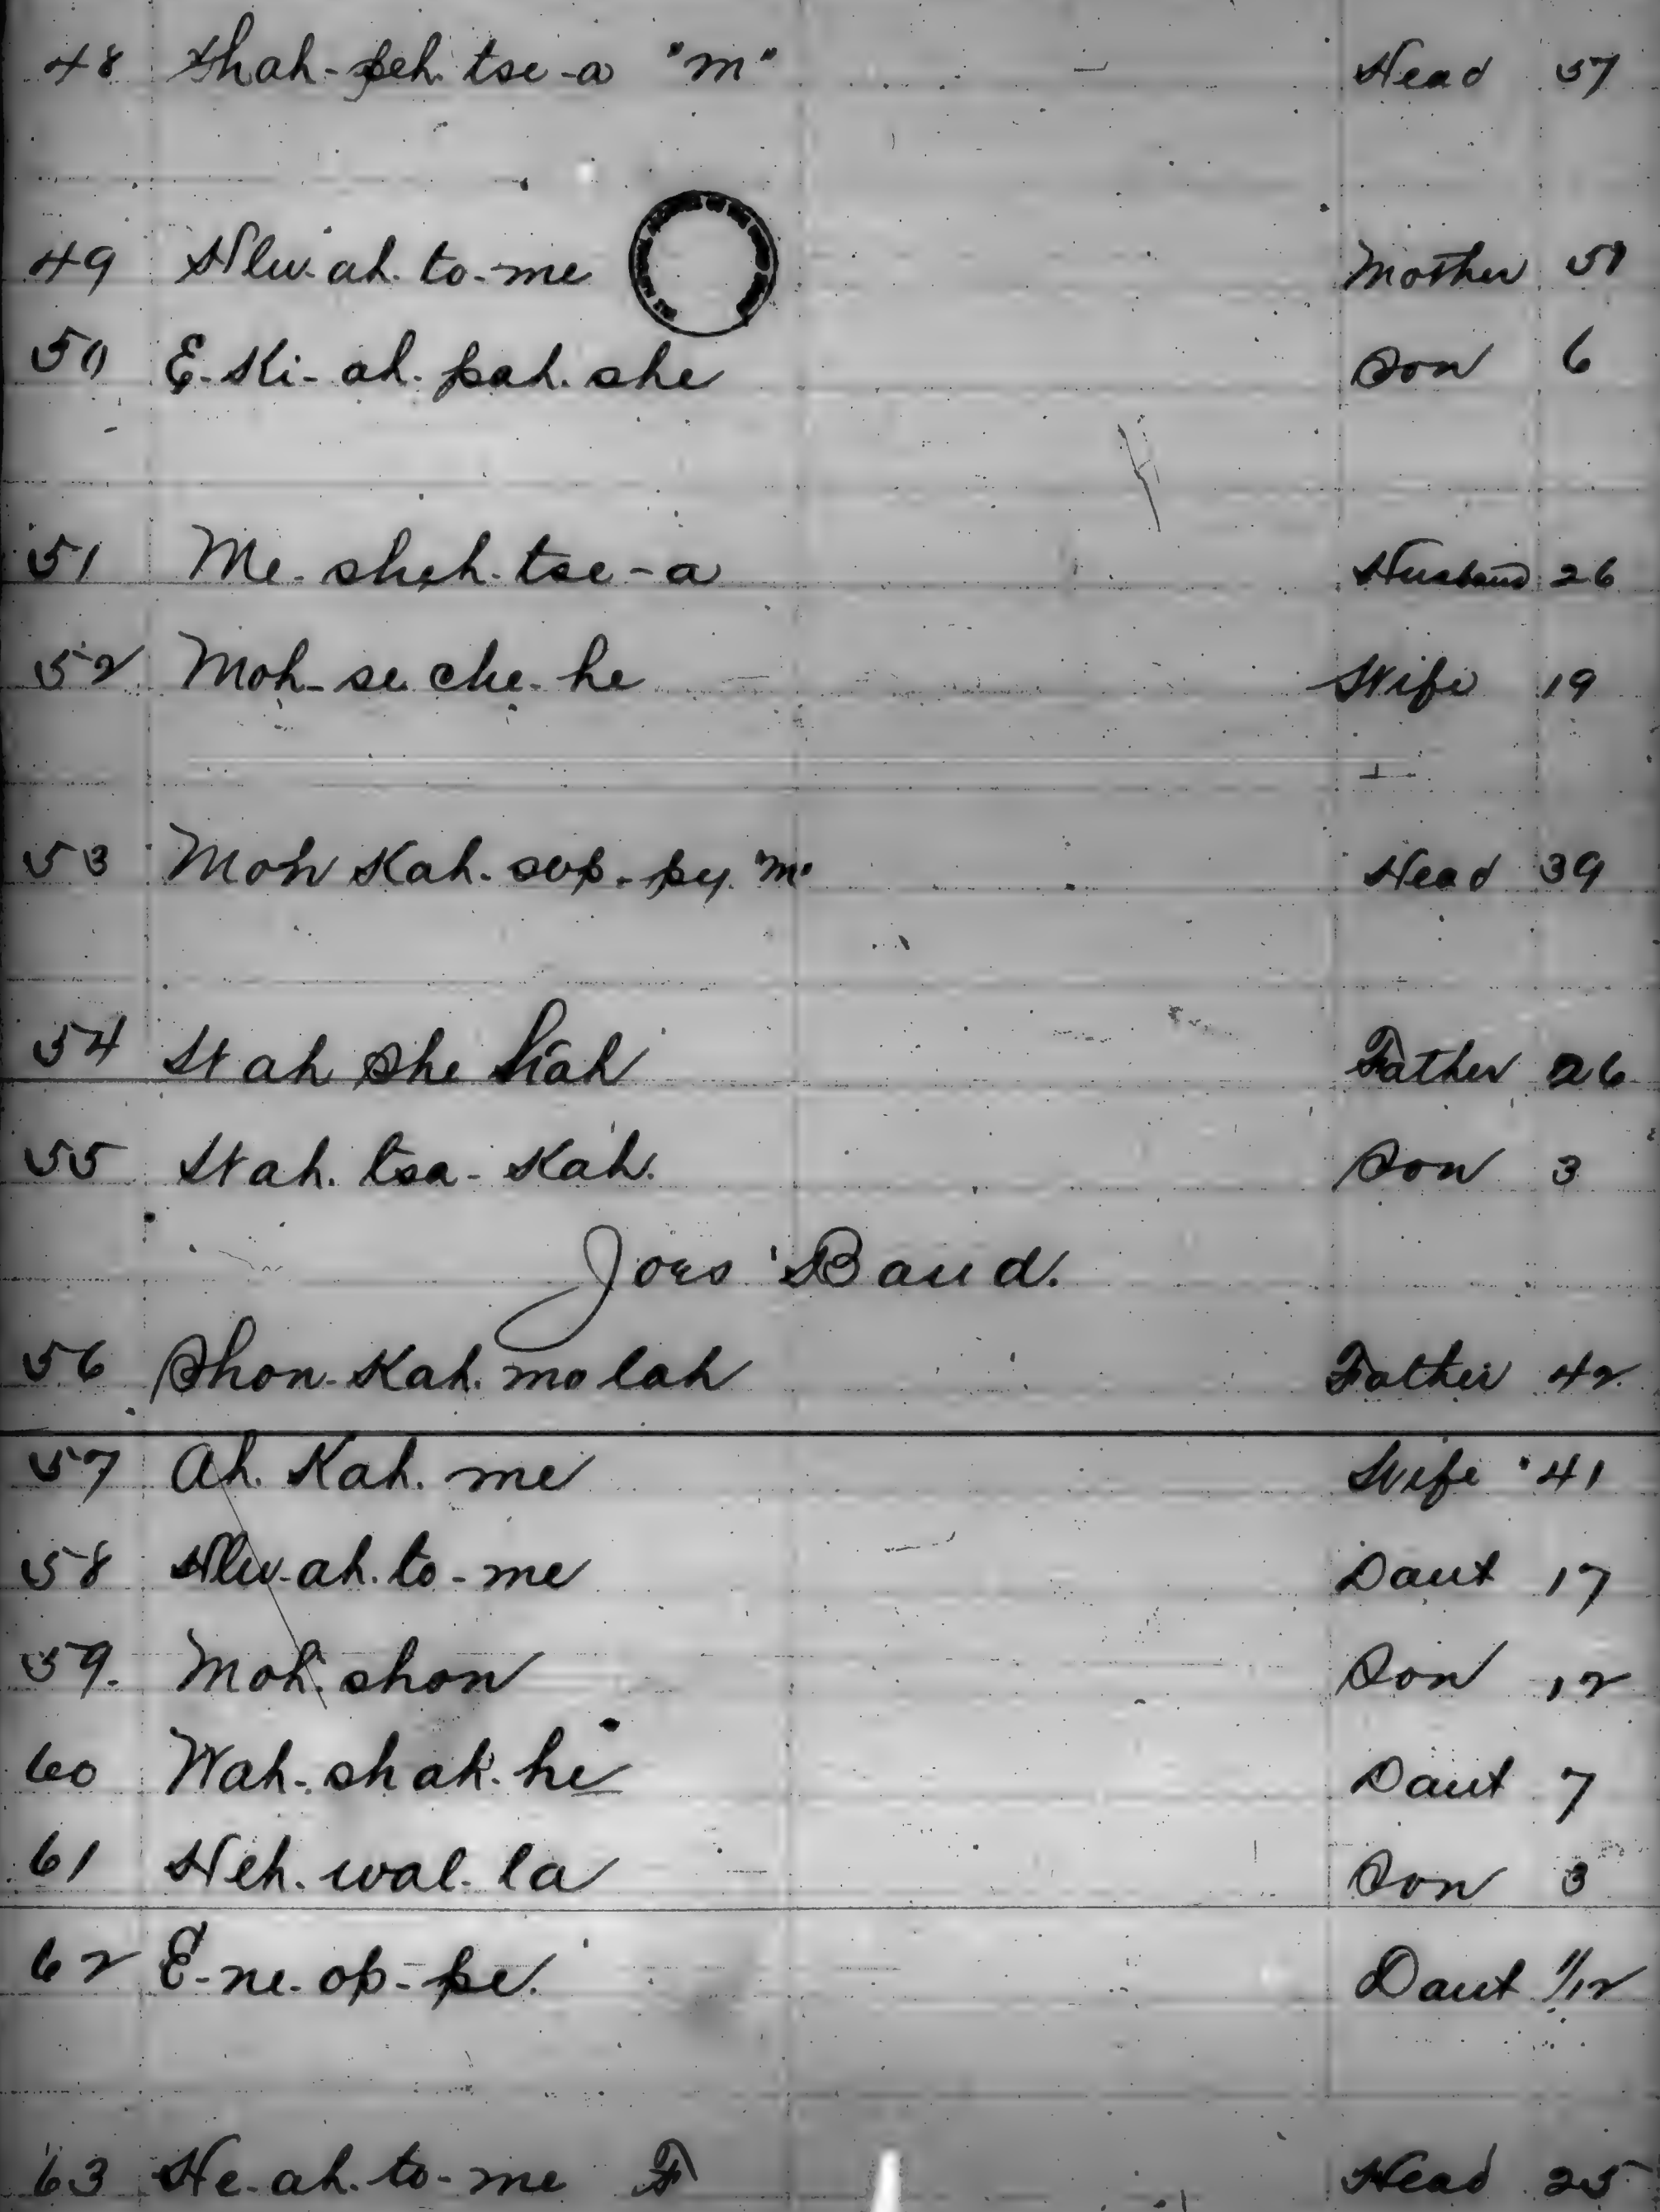 48 Shah-peh tse-a "m" Head 57
49 Hlu-ah-to-me Mother 51
50 E-Ki-ah-pah-she Son 6
51 Me-sheh-tse-a Husband 26
52 Moh-se che-he Wife 19
53 Moh Kah-sop-py "m" Head 39
54 Wah She hah Father 26
55 Wah-tsa-Kah. Son 3
Joes Band.
56 Shon-Kah-molah Father 42
57 Ah-Kah-me Wife 41
58 Hlu-ah-to-me Daut 17
59. Moh-shon Son 12
60 Wah-shah-he Daut 7
61 Heh-wal-la Son 3
62 E-ne-op-pe. Daut 1/12
63 He-ah-to-me F Head 25